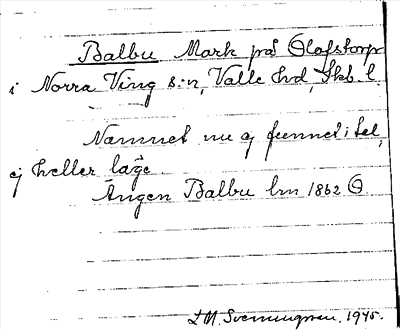 Balbu Mark på Olofstorp
i Norra Ving s:n, Valle hd, Skb. l.
Namnet nu ej funnet i tel,
ej heller läge.
Ängen Balbu lm 1862
Svenungsson, 1945.